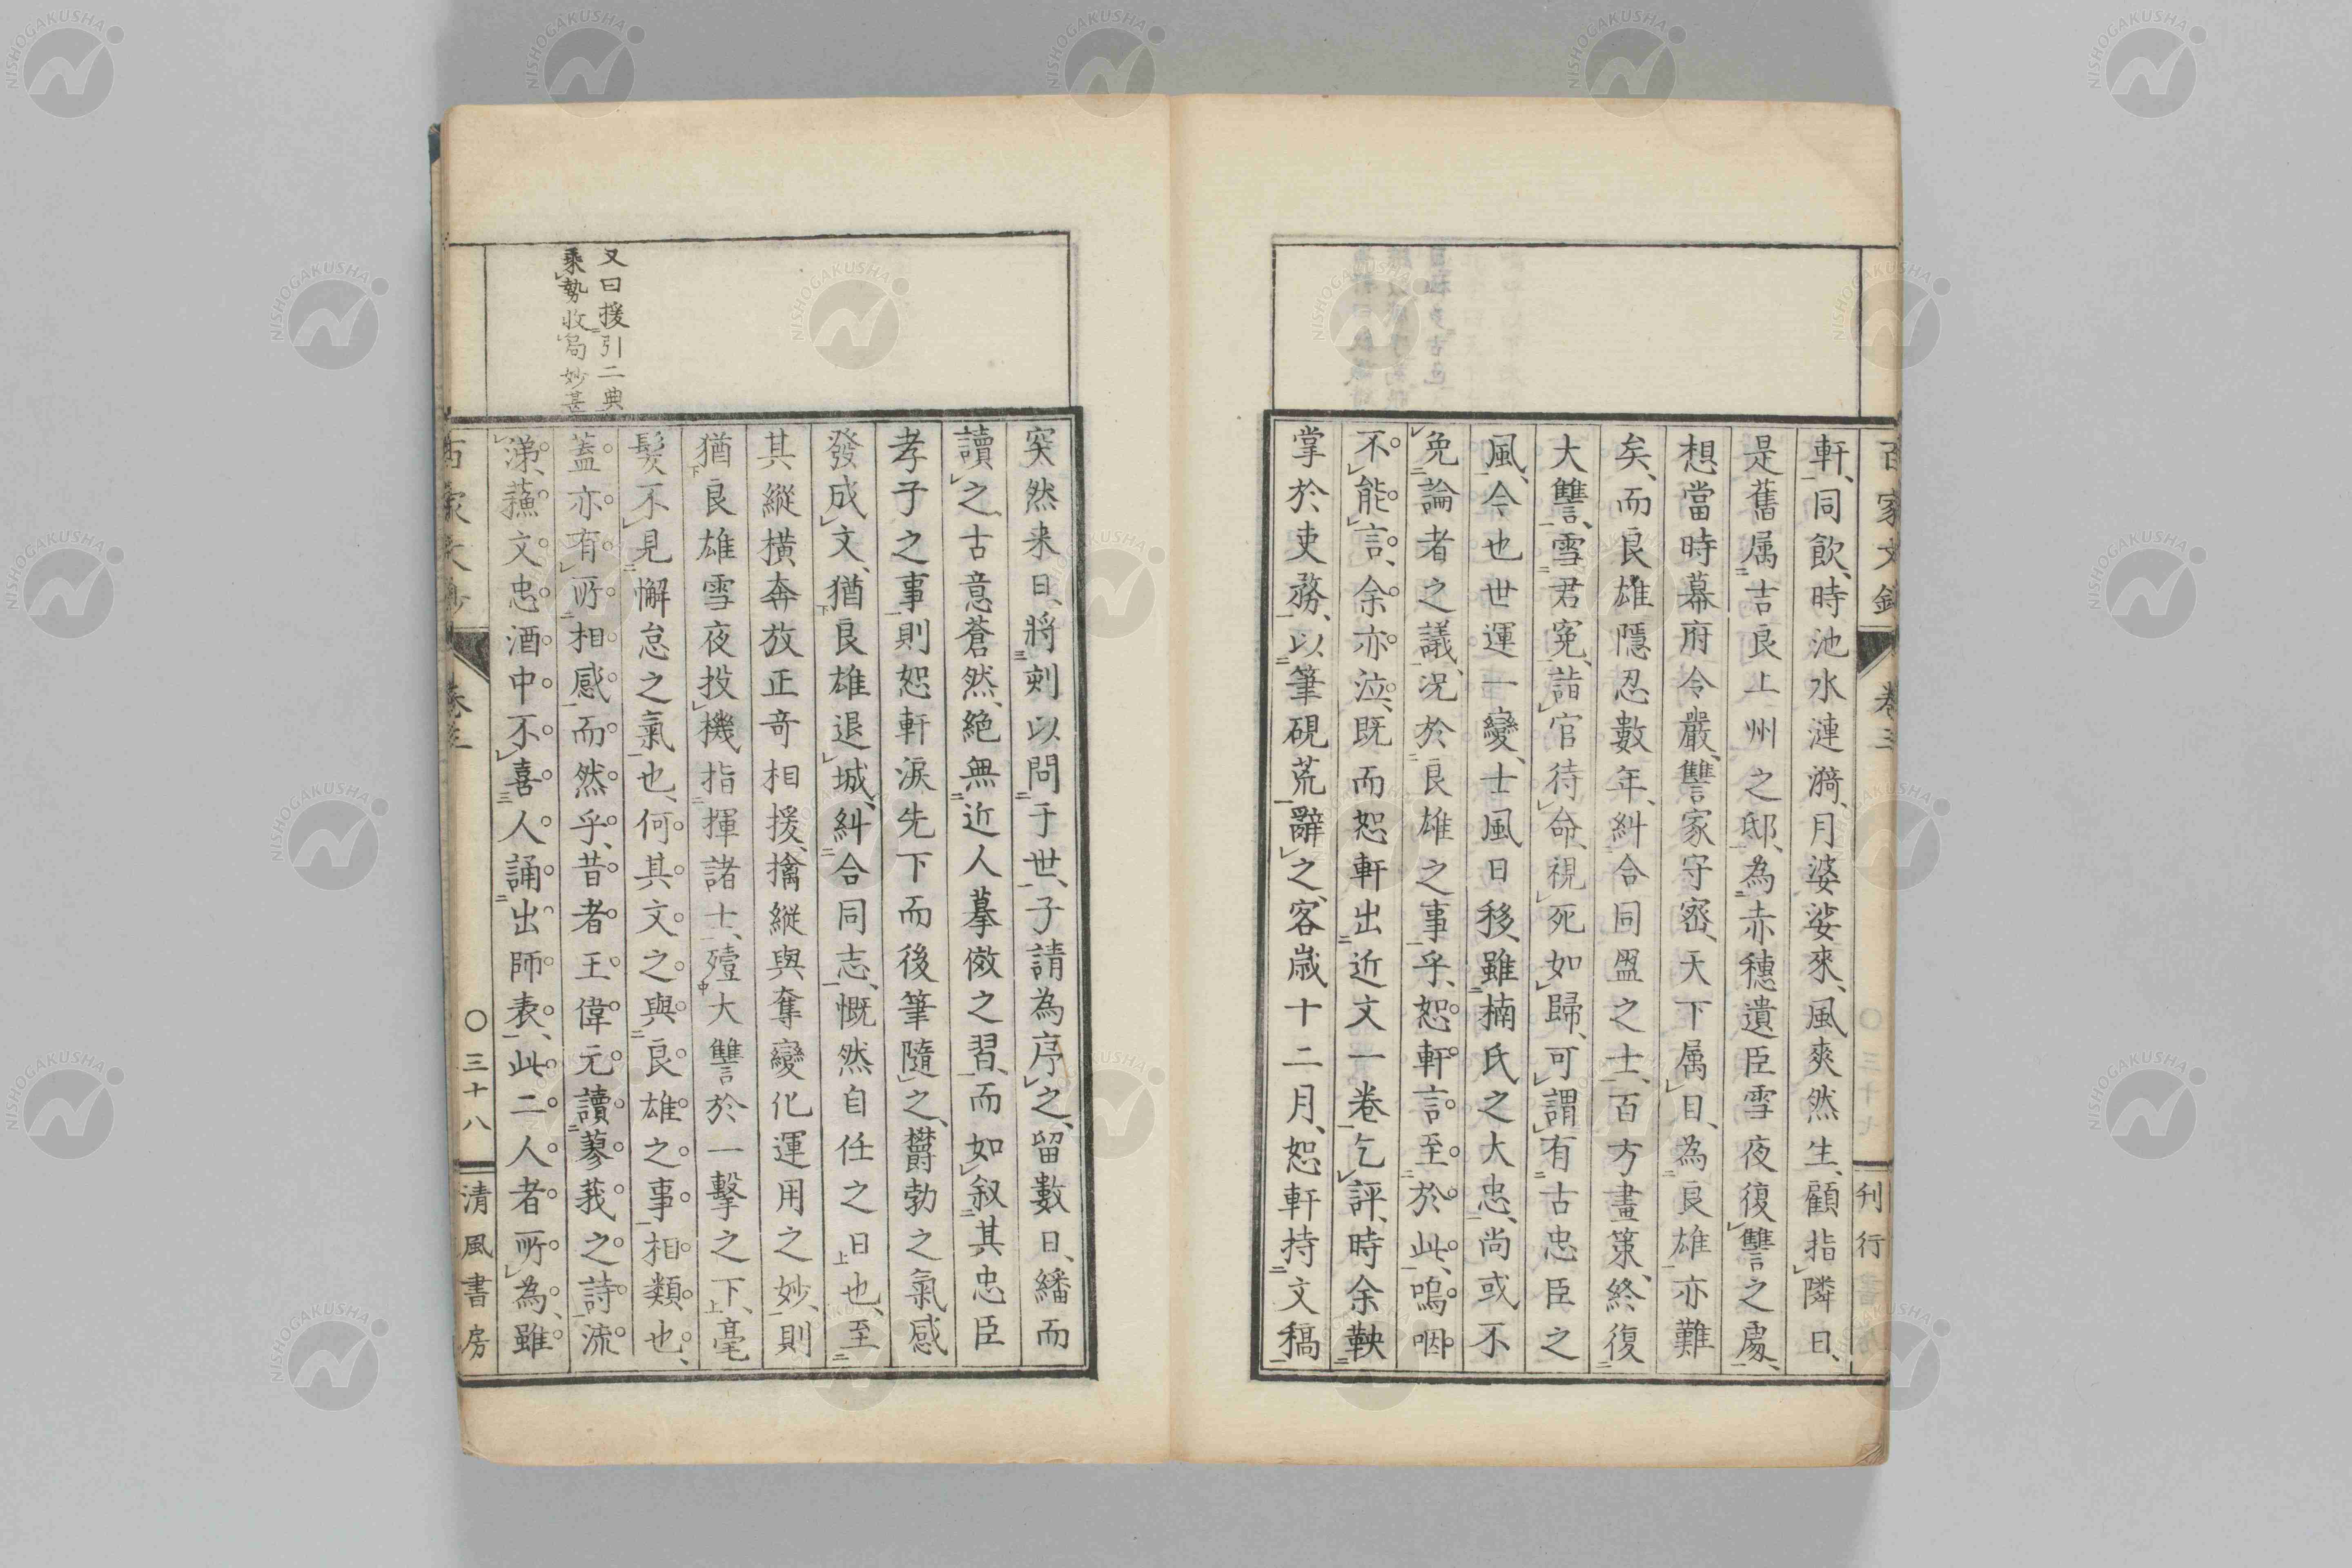 百家文鈔 卷三 刊行
軒、同飲、時池水漣漪、月婆娑來、風爽然生、顧指隣曰、
是舊属吉良上州之邸、為赤穗遺臣雪夜復讐之處、
想當時幕府令嚴、讐家守密、天下属目、為良雄亦難
矣、而良雄隱忍數年、糾合同盟之士、百方畫策、終復
大讐、雪君寃、詣官待命、視死如歸、可謂有古忠臣之
風、今也世運一變、士風日移、雖楠氏之大忠、尚或不
免論者之議、况於良雄之事乎、恕軒言至於此、嗚咽
不能言、余亦泣、既而恕軒出近文一卷乞評、時余鞅
掌於吏務、以筆硯荒辭之、客歳十二月、恕軒持文稿
突然来曰、將刻以問于世、子請為序之、留數日、繙而
讀之、古意蒼然、絶無近人摹倣之習、而如叙其忠臣
孝子之事、則恕軒淚先下而後筆隨之、欝勃之氣感
發成文、猶良雄退城、糾合同志、慨然自任之日也、至
其縱横奔放正奇相援、擒縦與奪變化運用之妙、則
猶良雄雪夜投機指揮諸士、殪大讐於一擊之下、毫
髮不見懈怠之氣也、何其文之與良雄之事相類也、
又曰援引二典
乘勢收局妙甚
蓋亦有所相感而然乎、昔者王偉元讀蓼莪之詩流
涕、蘓文忠酒中不喜人誦出師表、此二人者所為、雖
百家文鈔 卷三 〇三十八 清風書房
NISHOGAKUSHA